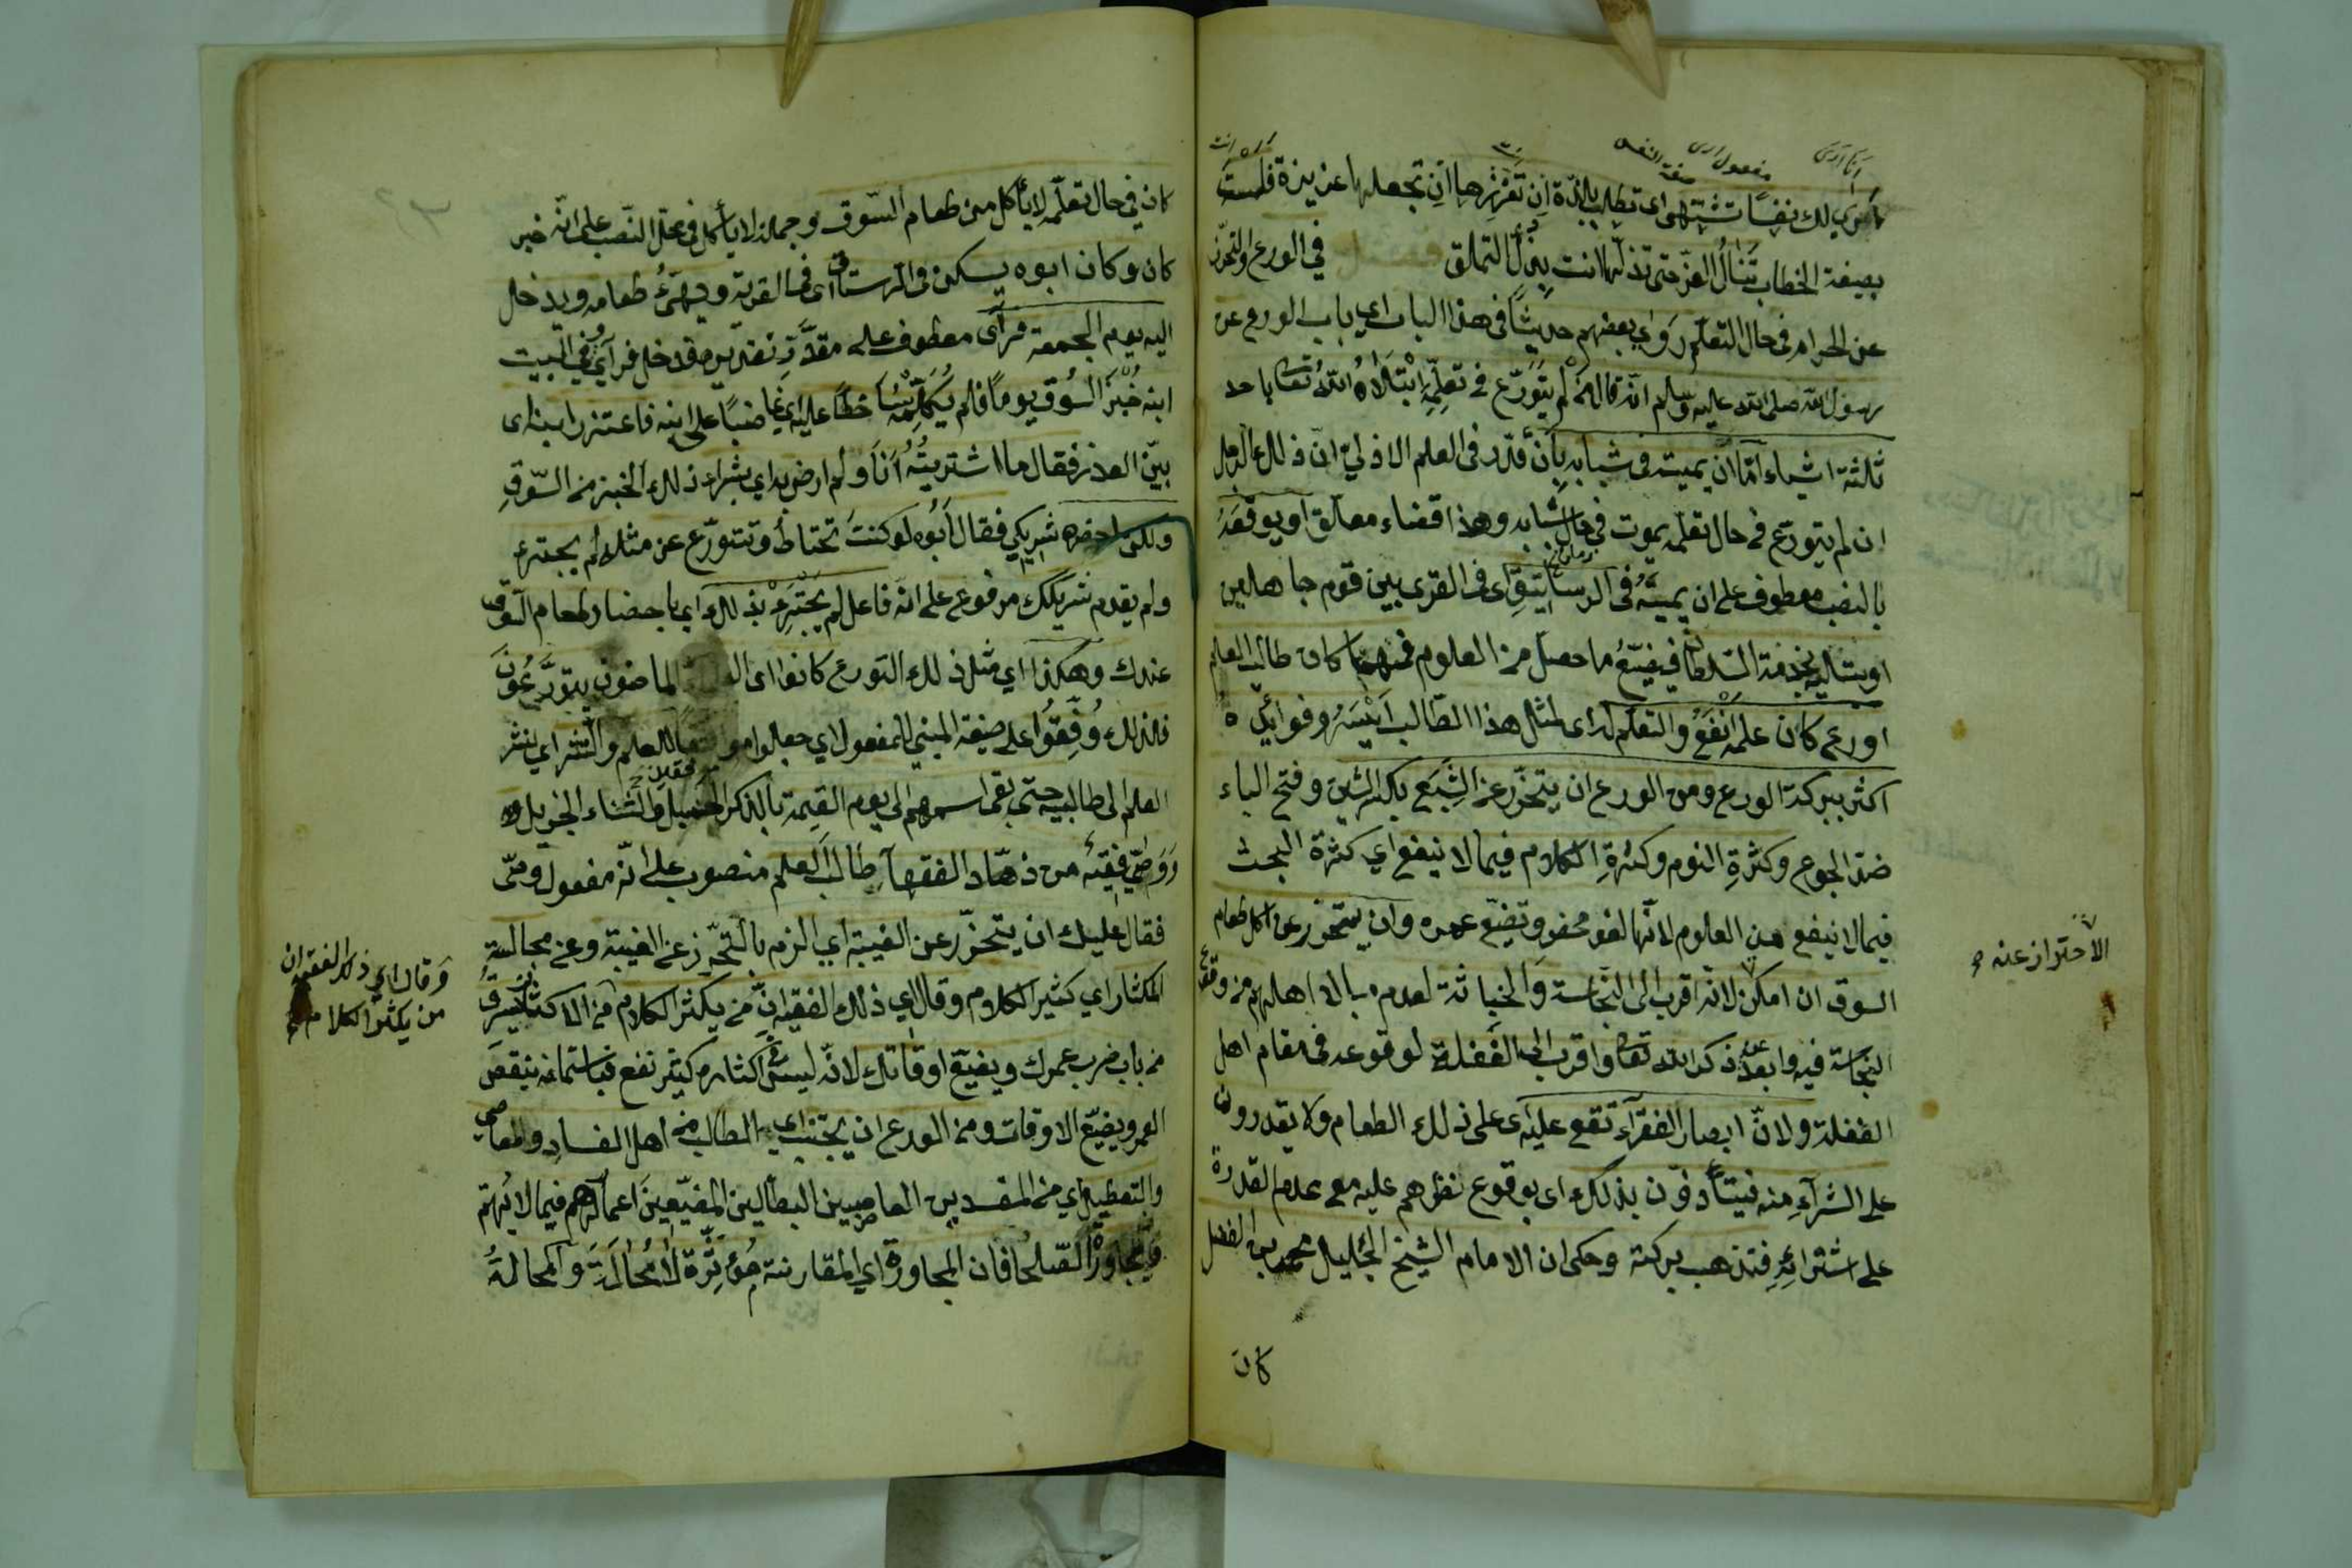 انا ارى
مفعول ارى
صفة النفس
انت
أرى لك نفسًا تشتهى اى تطلب باللذّة ان تعزّزها ان تجعلها عزيزة فلست
بصيغة الخطاب تنال العزّ حتى تذلّها انت بذلّ التملق فصل في الورع والتحرّز
عن الحرام في حال التعلّم روى بعضهم حديثًا فى هذا الباب اي باب الورع عن
رسول الله صلى الله عليه وسلم انّه قال من لم يتورّع في تعلّمه ابتلاه الله تعالى باحد
ثلثة اشياء امّا ان يميته فى شبابه بان قدّر فى العلم الازليّ انّ ذلك الرجل
ان لم يتورع فى حال تعلّمه يموت في حال شبابه وهذا قضاء معلّق او يوقعَهُ
بالنصب معطوف على ان يميته فى الرساتيق اى فى القرى بين قوم جاهلين
او يبتليه بخدمة السّلطان فيضيّعُ ما حصل من العلوم فمهما كان طالب العلم
اورع كان علمه انفعُ والتعلّم له اى لمثل هذا الطّالب ايسرُ وفوائده
اكثر ببركة الورع ومن الورع ان يتحرّز عن الشِّبَع بكسر الشين وفتح الباء
ضدّ الجوع وكثرةِ النوم وكثرةِ الكلام فيما لا ينفع اي كثرة البحث
فيما لا ينفع من العلوم لانّها لغو محض وتضيّع عمره وان يتحرّز عن اكل طعام
السوق ان امكن لانّه اقرب الى النّجاسة والخباثة لعدم مبالاة اهلهم من وقوع
النجاسة فيه وابعد عن ذكر الله تعالى واقرب الى الغَفلة لوقوعه فى مقام اهل
الغفلة ولانّ ابصار الفقرآء تقع عليه اى على ذلك الطعام ولا يقدرون
على الشرآءِ منه فيتأذّون بذلك اى بوقوع نظرهم عليه مع عدم القدرة
على اشترائِهِ فتذهب بركته وحكى ان الامام الشيخ الجليل محمد بن الفضل
كان
الاحتراز عنه
كان في حال تعلّمه لا يأكل من طعام السّوق وجملة لا يأكل فى محلّ النّصب على انّه خبر
كان وكان ابوه يسكن فى الرستاق اى فى القرية ويهيّئُ طعامه ويدخل
اليه يوم الجمعة فرأى معطوف على مقدّر تقديره فدخل فرآى في البيت
ابنه خُبزَ السُوق يومًا فلم يُكلّمه ساخطًا عليه اي غاضبًا على ابنه فاعتذر ابنه اى
بيّن العذر فقال ما اشتريتُهُ أنا ولم ارض به اي بشراء ذلك الخبز من السّوقِ
ولكن احضره شريكي فقال ابوه لو كنتَ تحتاط وتتورّع عن مثله لم يجترئ
ولم يقدم شريكك مرفوع على انّه فاعل لم يجترئ بذلك اي باحضار طعام السّوق
عندك وهكذا اي مثل ذلك التورع كانوا اى الماضون يتورّعُونَ
فلذلك وُفِّقُوا على صيغة المبني للمفعول اي جعلوا للعلم والنشر اي لنشر
العلم الى طالبيه حتى بقى اسمهم الى يوم القيمة بالذكر الجميل والثناء الجزيل
ووصّى فقيهٌ من زهّاد الفقهآء طالبَ العلم منصوب على انّه مفعول وصّى
فقال عليك ان يتحرّز عن الغيبة اي الزم بالتحرّز عن الغيبة وعن مجالسة
المكثار اي كثير الكلام وقال اي ذلك الفقيه انّ من يكثر الكلام من الاكثار يسرق
من باب ضرب عمرك ويضيّع اوقاتك لانّه ليس فى اكثاره كثير نفع فباستماعه ينقص
العمر ويضيّع الاوقات ومن الورع ان يجتنب اي الطالب من اهل الفسادِ والمعاصي
والتعطيل اي من المفسدين العاصيين البطّالين المضيّعين اعمارهم فيما لا يُهمّ
ويجاورُ الصّلحا فان المجاورة اي المقارنة مُؤثّرة لا مُحالة والمحالةُ
وقال اي ذلك الفقيه ان
من يكثر الكلام